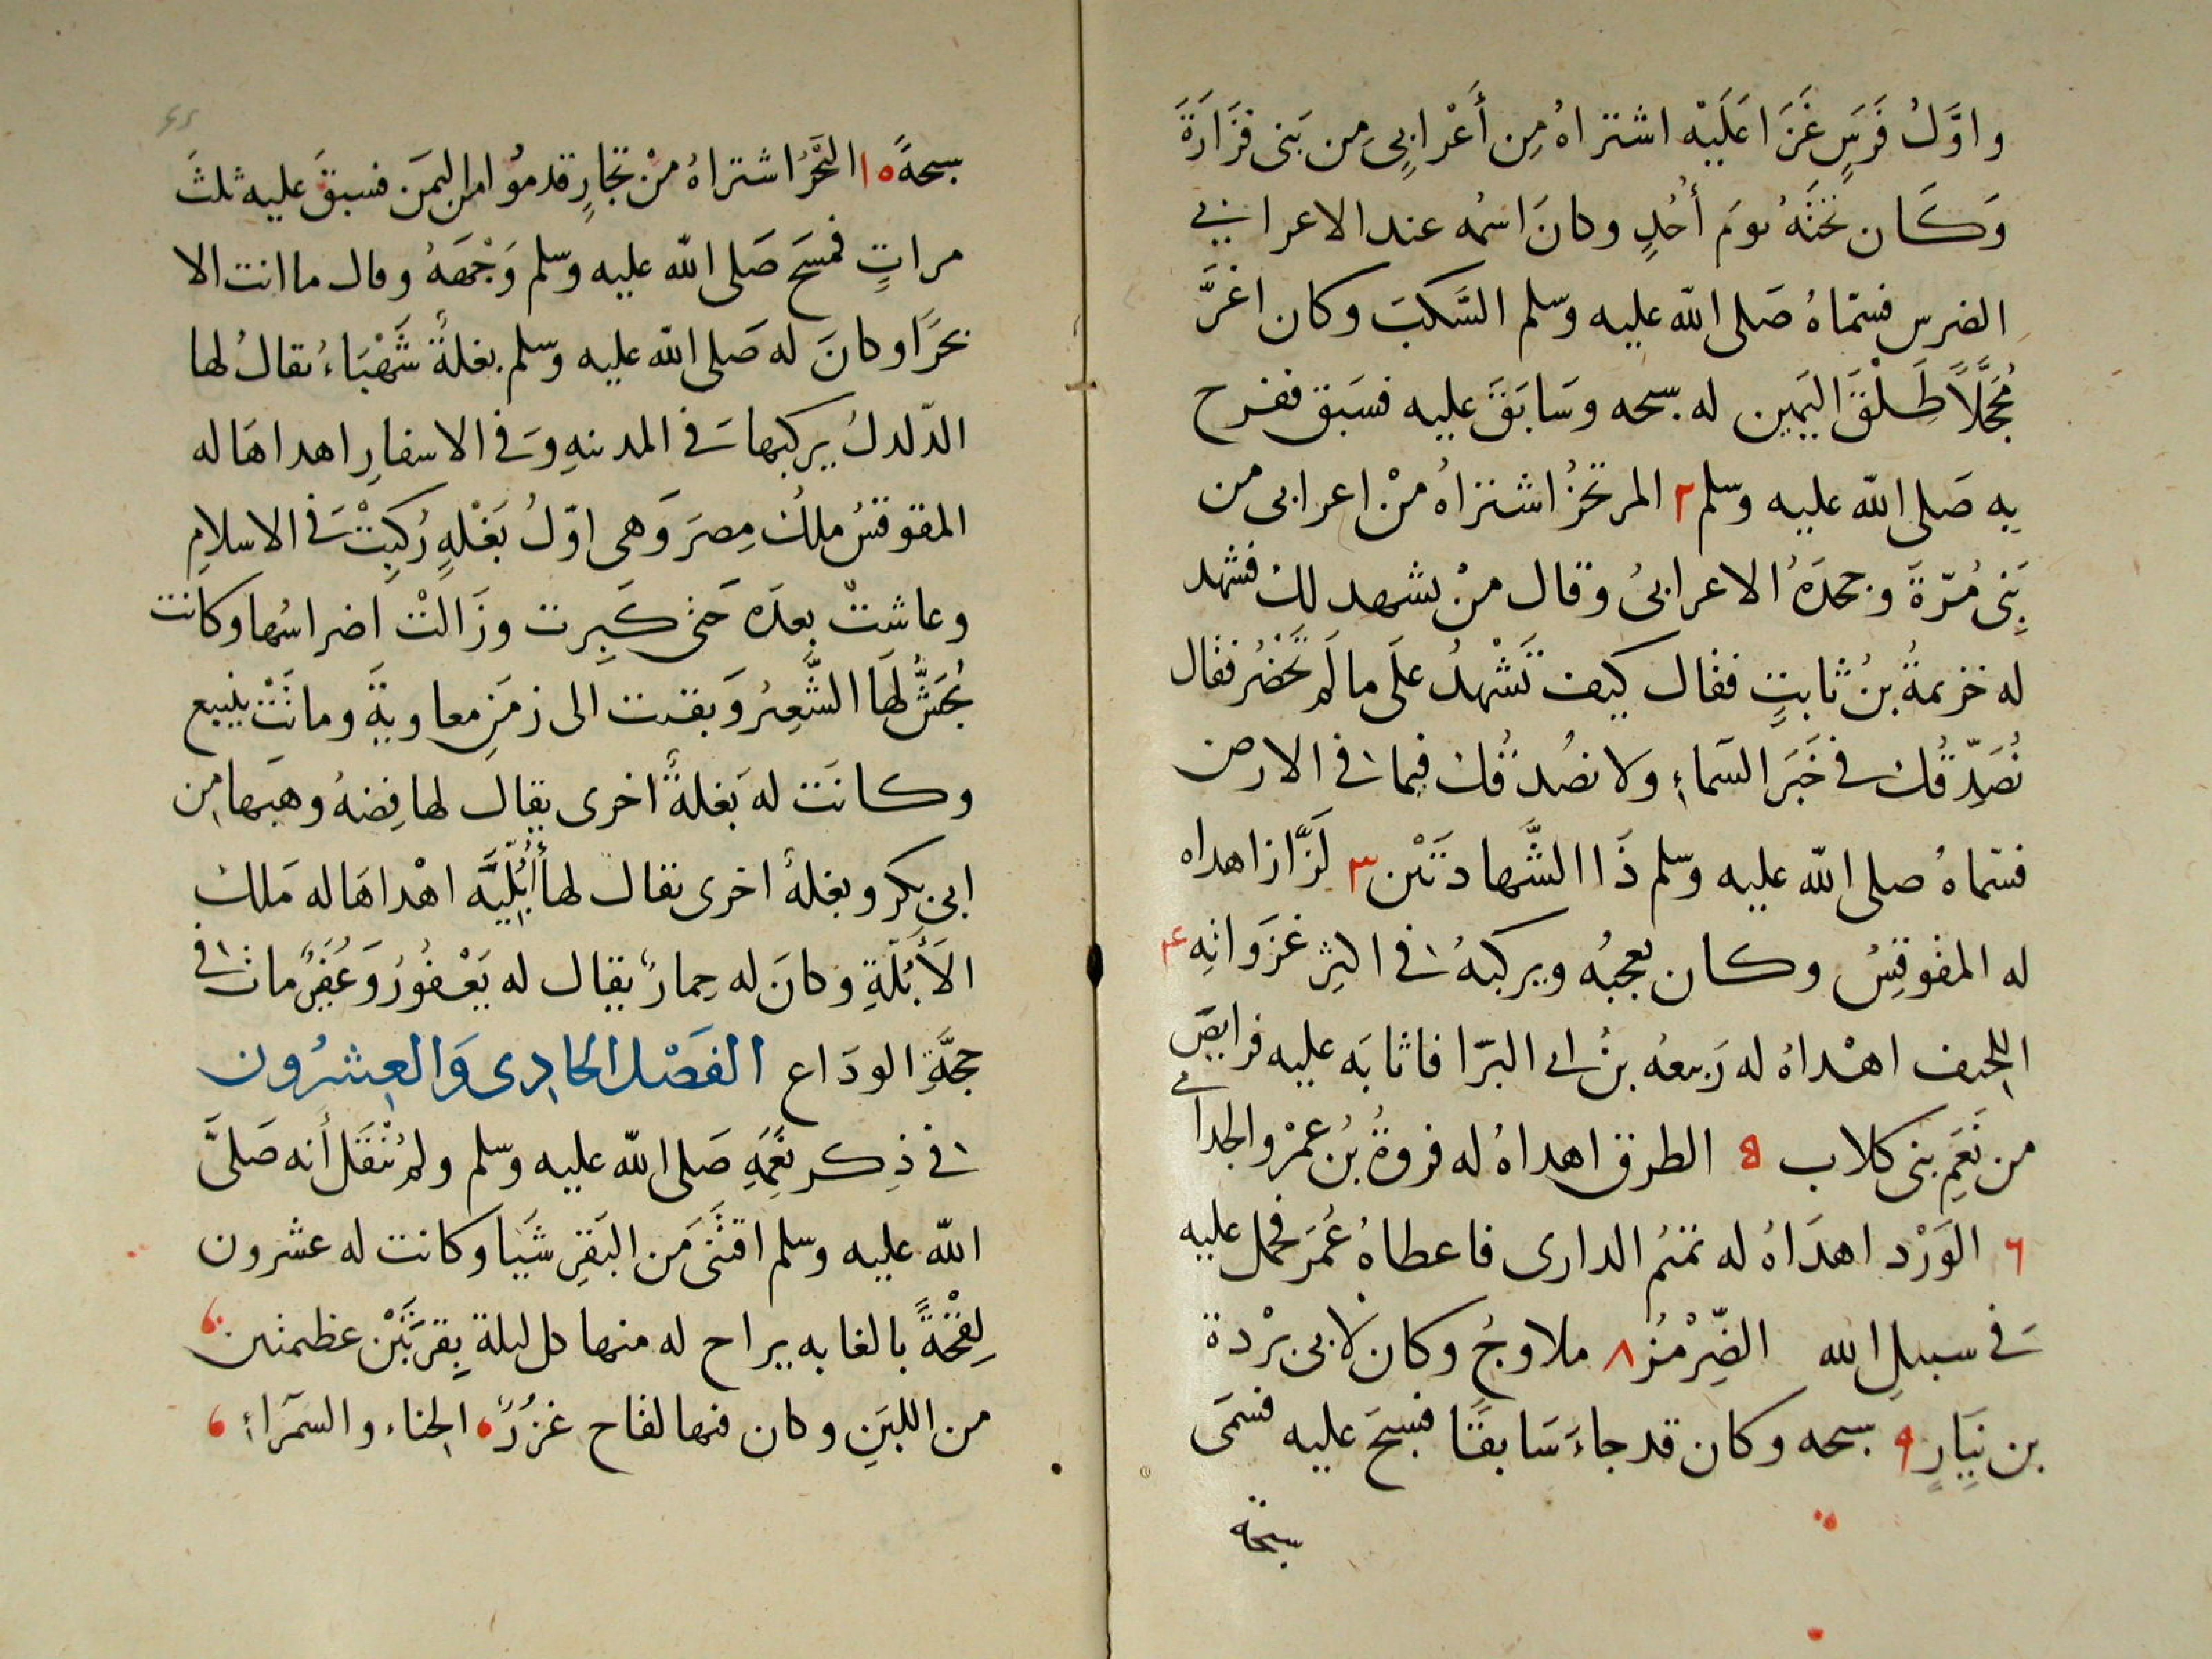 واوَّلُ فَرَسٍ غَزَا عَلَيْه اشتراهُ مِن أَعْرابِيٍ مِن بَنى فَزَارَةَ
وَكَان تَحْتَهُ يومَ أُحُدٍ وكانَ اسمُه عند الاعرابي
الضرس فسمّاهُ صَلى اللّه عليه وسلم السَّكبَ وكان اغرَّ
مُحَجَّلًا طَلْقَ اليَمين له سبحه وسَابَقَ عليه فسَبق ففرح
به صَلى اللّه عليه وسلم ٢ المرتجزُ اشتراهُ منْ اعرابى من
بَنِى مُرّةَ وجحدَهُ الاعرابىُ وقال منْ يشهد لك فشهد
له خزيمةُ بنُ ثابتٍ فقال كيف تَشْهدُ علَى ما لَم تَحْضُر فقال
نُصَدِّقُك في خَبَر السَّماءِ ولا نصُدقُك فيما في الارض
فسّماهُ صلى اللّه عليه وسلم ذَا الشَّهادتَيْن ٣ لَزَّاز اهداه
له المقوقِسُ وكان يعجبُه ويركبهُ في اكثرِ غزَواتِهِ ٤
اللحيف اهْداهُ له رَبيعه بنُ ابي البرّا فاثابَه عليه فرايضَ
من نَعَمِ بنى كلاب ٥ الطرق اهداهُ له فروةُ بنُ عمرْو الجذامي
٦ الوَرْد اهدَاهُ له تميمُ الدارى فاعطاهُ عُمَرَ فحمل عليه
في سبيلِ الله الضِّرْمُزُ ٨ ملاوحُ وكان لابى بُرْدة
بن نِيَارٍ ٩ سبحه وكان قد جاءَ سَابقًا فسبحَ عليه فسَمى
سبحة
سبحةً ١٠ البَحْرُ اشتراهُ منْ تجارٍ قدموُا من اليَمَن فسبقَ عليه ثلثَ
مراتٍ فمسَحَ صَلى اللّه عليه وسلم وَجْهَهُ وقال ما انت الا
بحرًا وكانَ له صَلى اللّه عليه وسلم بغلةٌ شَهْبَاءُ يقالُ لها
الدّلدلُ يركبها في المدينهِ وَفي الاسفارِ اهداهَا له
المقوقسُ ملكُ مِصرَ وَهى اوّلُ بَغْلهٍ رُكِبَتْ في الاسلامِ
وعاشتْ بعدَه حَتى كَبِرت وزَالَتْ اضراسُها وكانت
يُجَشُّ لهَا الشَّعِيرُ وَبقيت الى زمَنِ معاويةَ وماتَتْ بينبع
وكانَت له بَغلةٌ اخرى يقال لها فِضهُ وهَبها من
ابى بكر وبغلةٌ اخرى يقال لها أَيْلِيَّه اهْداهَا له مَلك
الأَبُلّةِ وكانَ له حِمارٌ يقال له يَعْفورُ وَعُفَيرٌ مات في
حجَّةِ الودَاع الفَصْل الحادِى وَالعِشرُون
في ذِكر نعَمِهِ صَلى اللّه عليه وسلم ولم يُنْقَل أَنه صَلىَّ
اللّه عليه وسلم اقتَنَى مَن البَقرِ شَيا وكانت له عشرون
لِقْحَةً بالغابه يراح له منها كل ليلة بِقربَتَيْن عظيمتين
من اللبَنِ وكان فيها لقاح غزُرٌ الحِناء والسَمَراءُ